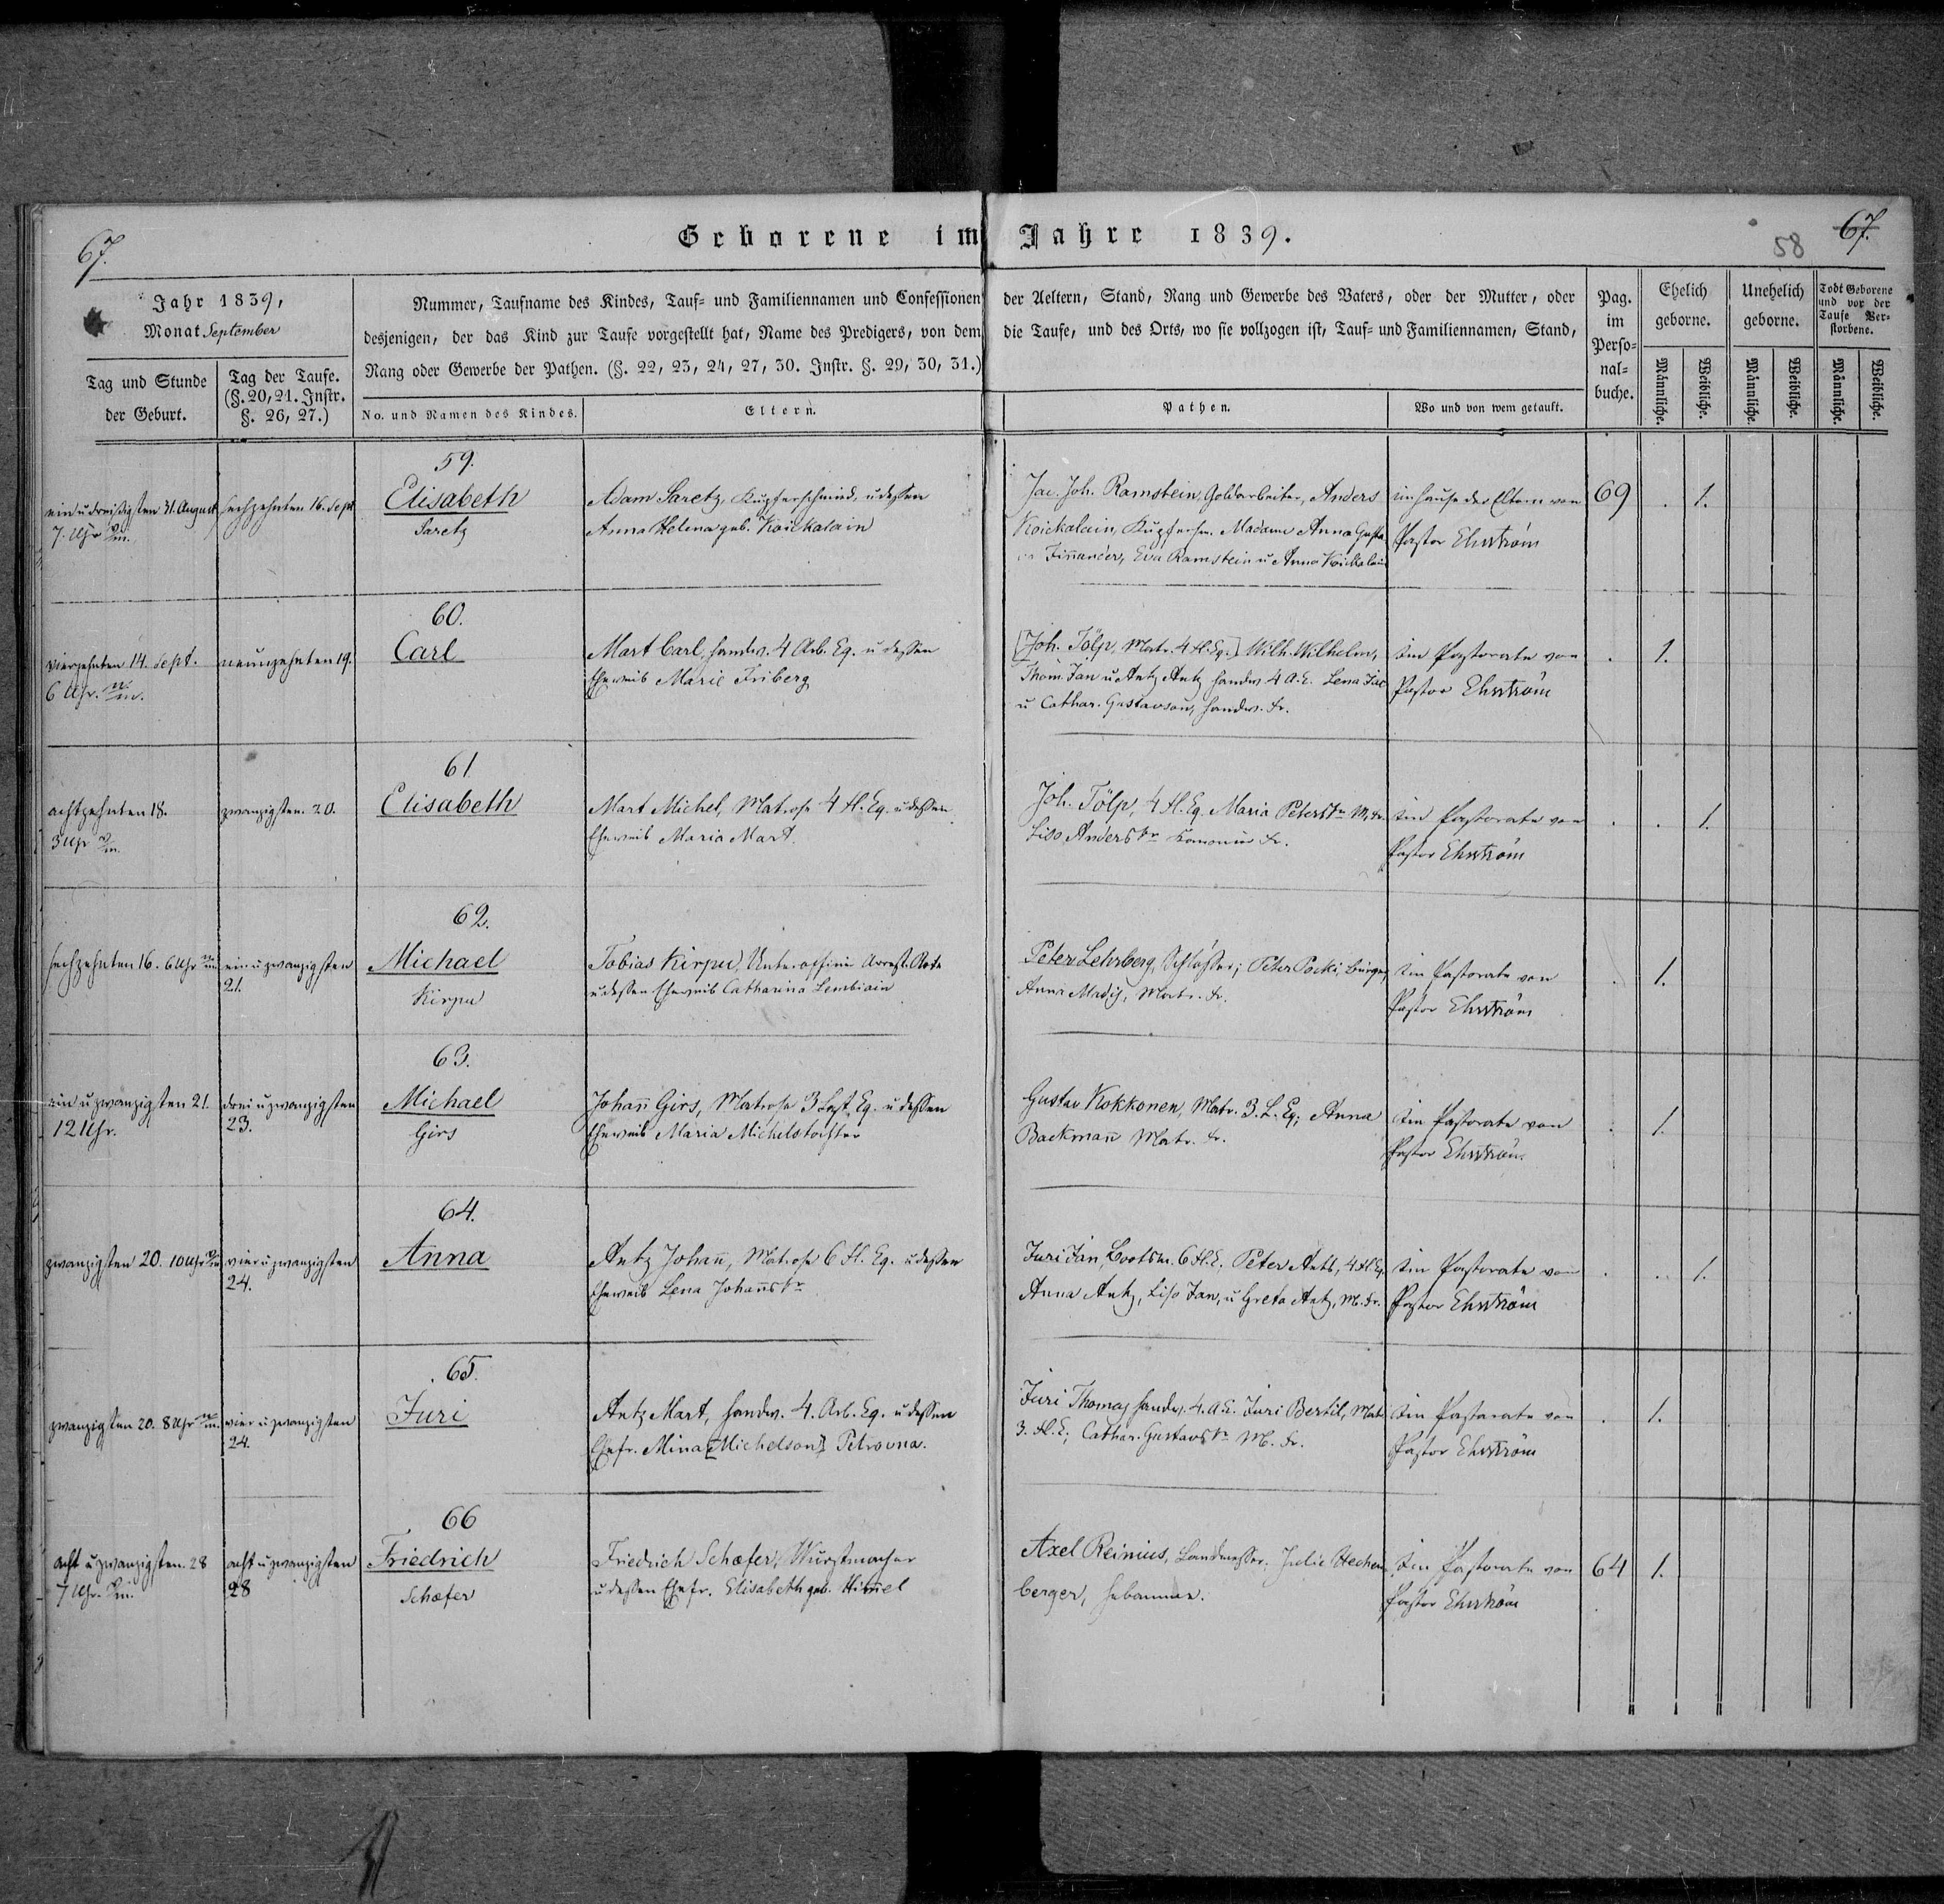 67.
Geborene im Jahre 1839.
58
67.
Jahr 1839,
Monat September
Tag und Stunde
der Geburt.
Tag der Taufe.
(§. 20, 21. Instr.
§. 26, 27.)
Nummer, Taufname des Kindes, Tauf- und Familiennamen und Confessionen der Aeltern, Stand, Rang und Gewerbe des Vaters, oder der Mutter, oder
desjenigen, der das Kind zur Taufe vorgestellt hat, Name des Predigers, von dem die Taufe, und des Orts, wo sie vollzogen ist, Tauf- und Familiennamen, Stand,
Rang oder Gewerbe der Pathen. (§. 22, 23, 24, 27, 30. Instr. §. 29, 30, 31.)
No. und Namen des Kindes.
Eltern.
Pathen.
Wo und von wem getauft.
Pag.
im
Perso-
nal-
buche.
Ehelich
geborne.
Unehelich
geborne.
Todt Geborene
und vor der
Taufe Ver-
storbene.
Männliche.
Weibliche.
Männliche.
Weibliche.
Männliche.
Weibliche.
ein u dreißigsten 31. August
7. Uhr Vm.
sechzehnten 16. Sept
59.
Elisabeth
Saretz
Adam Saretz, Kupferschmied, u dessen
Anna Helena geb. Koickalain
Jac. Joh. Ramstein, Goldarbeiter, Anders
Koickalain, Kupfersm. Madame Anna Gusta
va Finnander, Eva Ramstein u Anna Koickalain
im Hause der Eltern von
Pastor Ehrström
69
1.
vierzehnten 14. Sept.
6 Uhr. Nm.
neunzehnten 19.
60.
Carl
Mart Carl, Handw. 4 Arb. Eq. u dessen
Eheweib Marie Friberg
[Joh. Tölp, Matr. 4 Fl. Eq.] Wilh. Wilhelm,
Thom. Jan u Antz Antz Handw 4 A. E. Lena Jac
u Cathar. Gustavson, Handw. Fr.
im Pastorate von
Pastor Ehrström
1.
achtzehnten 18.
3 Uhr Nm.
zwanzigsten. 20.
61
Elisabeth
Mart Michel, Matrose 4 Fl. Eq. u dessen
Eheweib Maria Mart.
Joh. Tölp, 4 Fl. Eq. Maria Peterstr M. Fr.
Liso Anderstr Fr.
im Pastorate von
Pastor Ehrström
1.
sechzehnten 16. 6 Uhr Nm.
ein u zwanzigsten
21.
62.
Michael
Kirpu
Tobias Kirpu, Unteroffizir Arrest. Rote
u dessen Eheweib Catharina Lembiain
Peter Lehrberg, Schlosser; Peter Pocki, Bürger,
Anna Madis, Matr. Fr.
im Pastorate von
Pastor Ehrström
1.
ein u zwanzigsten 21.
12 Uhr.
drei u zwanzigsten
23.
63.
Michael
Girs
Johan̄ Girs, Matrose 3 Last. Eq. u dessen
Eheweib Maria Michelstochter
Gustav Kokkonen, Matr. 3. L. Eq; Anna
Backman̄ Matr. Fr.
im Pastorate von
Pastor Ehrström.
1.
zwanzigsten 20. 10 Uhr Vm
vier u zwanzigsten
24.
64.
Anna
Antz Johan̄, Matrose 6 Fl. Eq. u dessen
Eheweib Lena Johan̄str
Juri Jan, Bootsm. 6 Fl. E. Peter Antz, 4 Fl Eq.
Anna Antz, Liso Jan, u Greta Antz, M. Fr.
im Pastorate von
Pastor Ehrström
1.
zwanzigsten 20. 8 Uhr Nm.
vier u zwanzigsten
24.
65.
Juri
Antz Mart, Handw. 4. Arb. Eq. u dessen
Ehefr. Mina [Michelson] Petrovna.
Juri Thomas Handw. 4. A. E. Juri Bertil, Matr.
3. Fl. E; Cathar. Gustavstr M. Fr.
im Pastorate von
Pastor Ehrström
1.
acht u zwanzigsten. 28
7 Uhr. Vm.
acht u zwanzigsten
28
66
Friedrich
Schæfer
Friedrich Schæfer, Wurstmacher
u dessen Ehefr. Elisabeth geb. Him̄el
Axel Reinius, Landmesser. Julie Hechen
berger, Hebamme.
im Pastorate von
Pastor Ehrström
64
1.